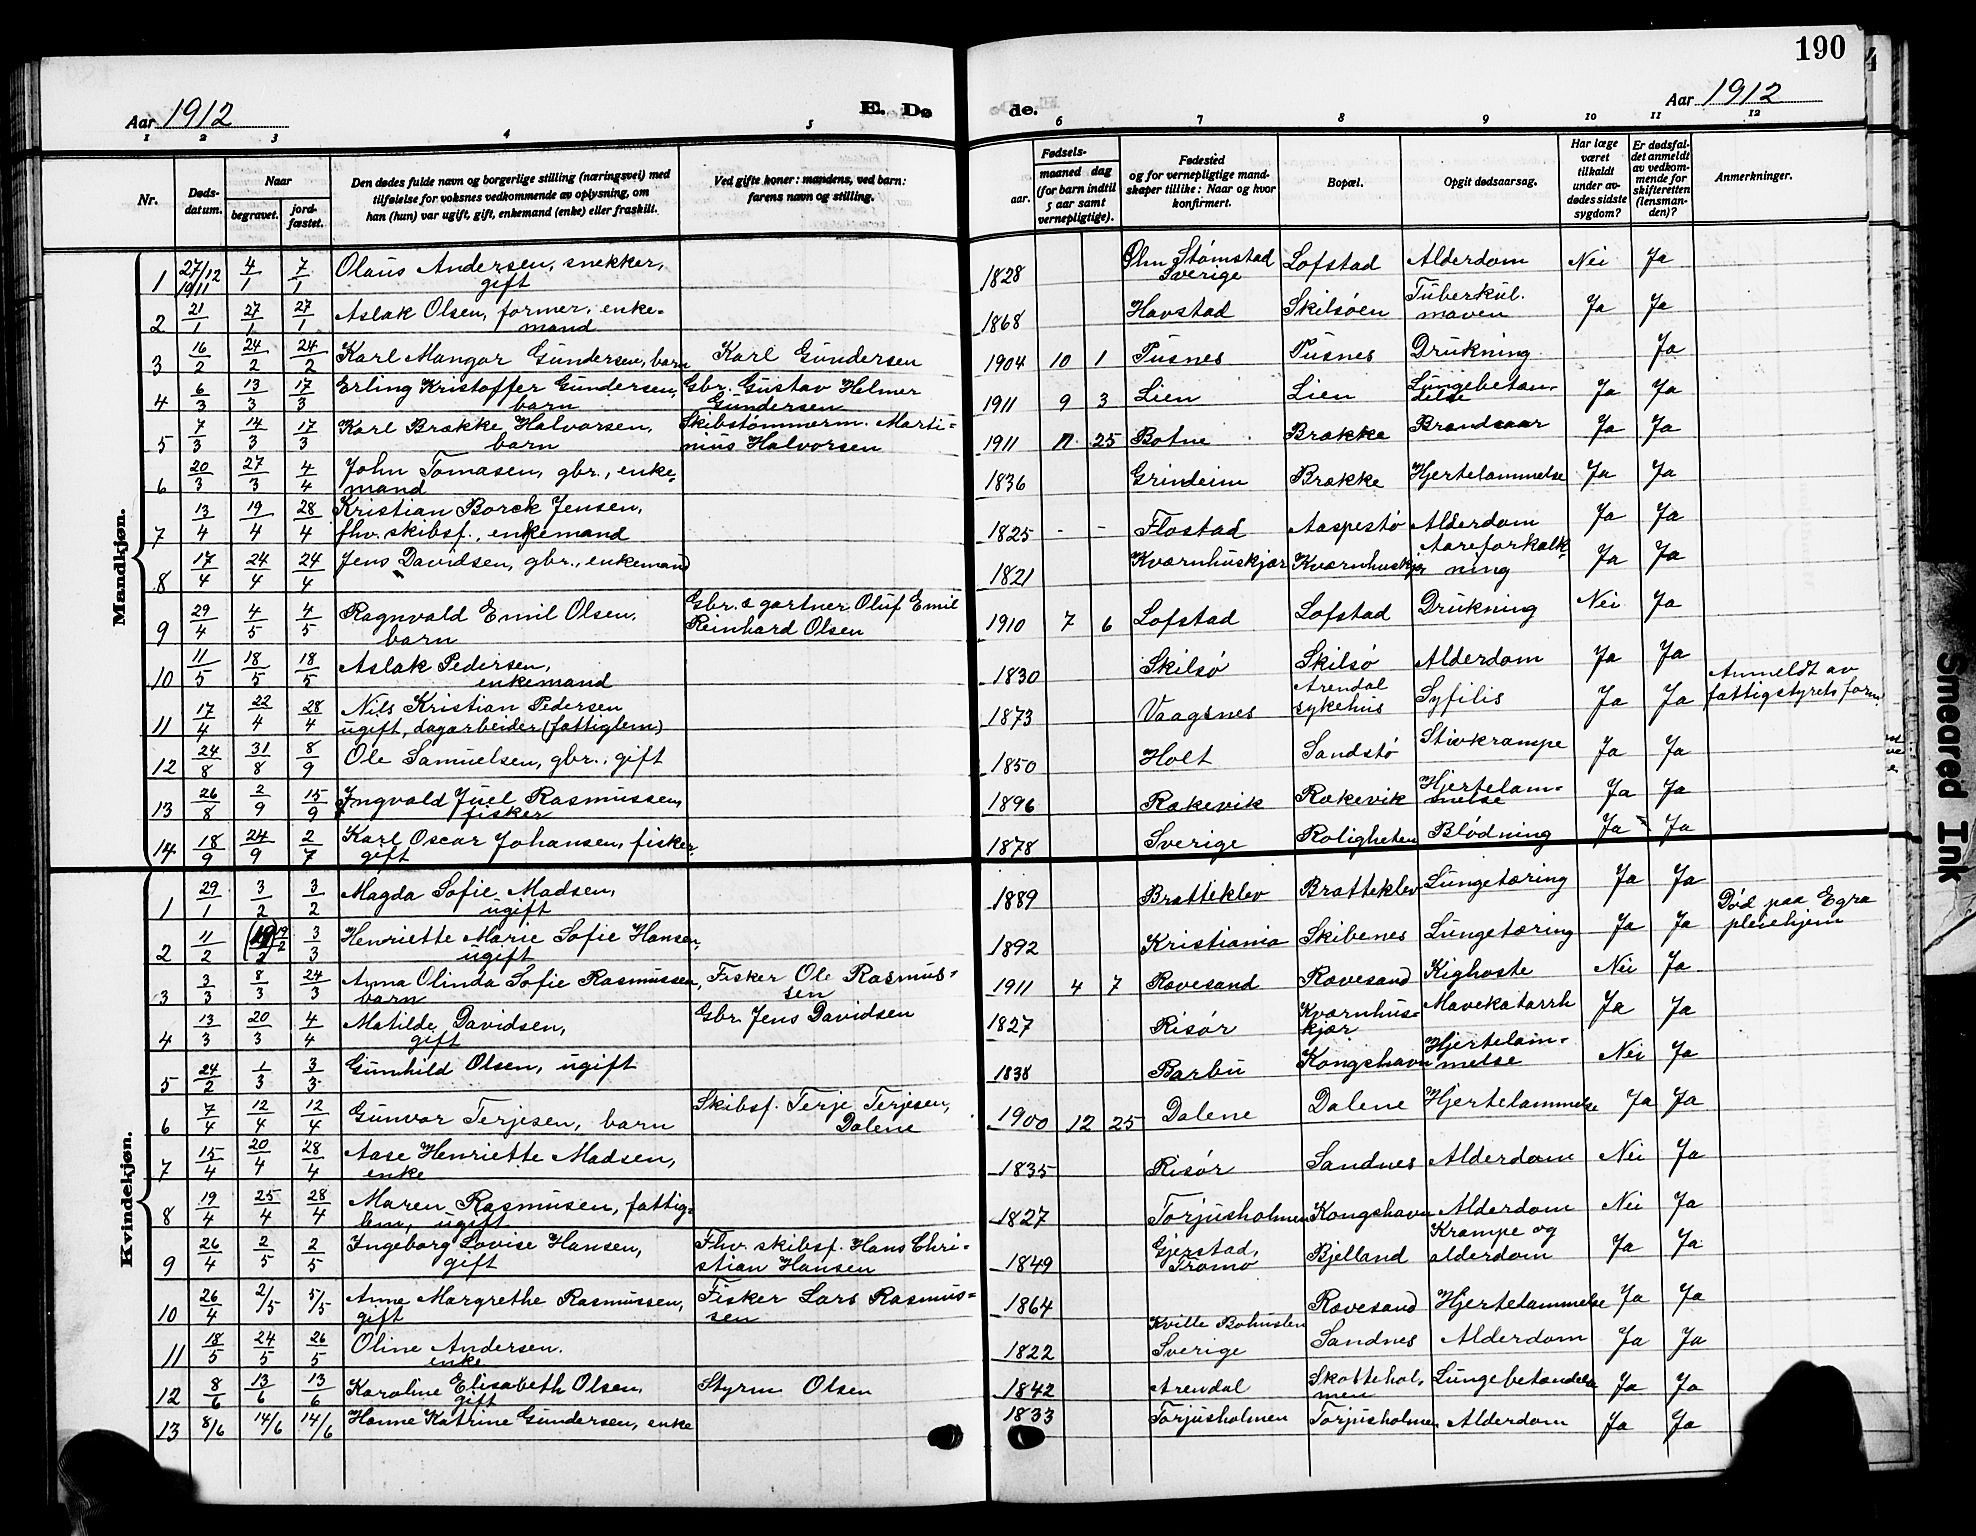 190
Aar 1912
E. Dø
de.
Aar 1912
1 2 3 4 5 6 7 8 9 10 11 12
Nr.
Døds-
datum.
Naar
begravet.
jord-
fæstet.
Den dødes fulde navn og borgerlige stilling (næringsvei) med
tilføielse for voksnes vedkommende av oplysning, om
han (hun) var ugift, gift, enkemand (enke) eller fraskilt.
Ved gifte koner: mandens, ved barn:
farens navn og stilling.
Fødsels-
aar.
maaned dag
(for barn indtil
5 aar samt
vernepligtige).
Fødested
og for vernepligtige mand-
skaper tillike: Naar og hvor
konfirmert.
Bopæl.
Opgit dødsaarsag.
Har læge
været
tilkaldt
under av-
dødes sidste
sygdom?
Er dødsfal-
det anmeldt
av vedkom-
mende for
skifteretten
(lensman-
den)?
Anmerkninger.
Mandkjøn.
1 27/12 1911 4/1 7/1 Olaus Andersen, snekker, gift 1828 Stømstad Sverige Lofstad Alderdom Nei Ja
2 21/1 27/1 27/1 Aslak Olsen, former, enke-
mand 1868 Havstad Skilsøen Tuberkul. maven Ja Ja
3 16/2 24/2 24/2 Karl Mangor Gundersen, barn Karl Gundersen 1904 10 1 Pusnes Pusnes Drukning Ja
4 6/3 13/3 17/3 Erling Kristoffer Gundersen, barn Gbr. Gustav Helmer Gundersen 1911 9 3 Lien Lien Lungebetæn-
delse Ja Ja
5 7/3 14/3 17/3 Karl Brække Halvorsen, barn Skibstømmerm. Marti-
nius Halvorsen 1911 11 25 Botne Brække Brandsaar Ja Ja
6 20/3 27/3 4/4 John Tomasen, gbr., enke-
mand 1836 Grindeim Brække Hjertelammelse Ja Ja
7 13/4 19/4 28/4 Kristian Borck Jensen,
fhv. skibsf., enkemand 1825 - - Flostad Aaspestø Alderdom Ja Ja
8 17/4 24/4 24/4 Jens Davidsen, gbr., enkemand 1821 Kværnhuskjær Kværnhuskjær Aareforkalk-
ning Ja Ja
9 29/4 4/5 4/5 Ragnvald Emil Olsen, barn Gbr. & gartner Oluf Emil
Reinhard Olsen 1910 7 6 Lofstad Lofstad Drukning Nei Ja
10 11/5 18/5 18/5 Aslak Pedersen, enkemand 1830 Skilsø Skilsø Alderdom Ja Ja
11 17/4 22/4 28/4 Nils Kristian Pedersen
ugift, dagarbeider (fattiglem) 1873 Vaagsnes Arendal sykehus Syfilis Ja Ja Anmeldt av
fattigstyrets form.
12 24/8 31/8 8/9 Ole Samuelsen, gbr., gift 1850 Holt Sandstø Stivkrampe Ja Ja
13 26/8 2/9 15/9 Ingvald Juel Rasmussen, fisker 1896 Rækevik Rækevik Hjertelam-
melse Ja Ja
14 18/9 24/9 2/7 Karl Oscar Johansen, fisker, gift 1878 Sverige Roligheten Blødning Ja Ja
Kvindekjøn.
1 29/1 3/2 3/2 Magda Sofie Madsen, ugift 1889 Bratteklev Bratteklev Lungetæring Ja Ja
2 11/2 19/2 3/3 Henriette Marie Sofie Hansen, ugift 1892 Kristiania Skibenes Lungetæring Ja Ja Død paa Egra
pleiehjem
3 3/3 8/3 24/3 Anna Olinda Sofie Rasmussen, barn Fisker Ole Rasmus-
sen 1911 4 7 Rævesand Rævesand Kighoste Nei Ja
4 13/3 20/3 4/4 Matilde Davidsen, gift Gbr. Jens Davidsen 1827 Risør Kværnhus-
kjær Mavekatarrh Ja Ja
5 24/2 1/3 3/3 Gunhild Olsen, ugift 1838 Barbu Kongshavn Hjertelam-
melse Nei Ja
6 7/4 12/4 12/4 Gunvor Terjesen, barn Skibsf. Terje Terjesen,
Dalene 1900 12 25 Dalene Dalene Hjertelammelse Ja Ja
7 15/4 20/4 28/4 Aase Henriette Madsen, enke 1835 Risør Sandnes Alderdom Nei Ja
8 19/4 25/4 28/4 Maren Rasmusen, fattig-
lem, ugift 1827 Torjusholmen Kongshavn Alderdom Nei Ja
9 26/4 2/5 2/5 Ingeborg Lovise Hansen, gift Fhv. skibsf. Hans Chri-
stian Hansen 1849 Gjerstad, Tromø Bjelland Krampe og
alderdom Ja Ja
10 26/4 2/5 5/5 Anne Margrethe Rasmussen, gift Fisker Lars Rasmus-
sen 1864 Rævesand Hjertelammelse Ja Ja
11 18/5 24/5 26/5 Oline Andersen. enke 1822 Kville Bohuslen Sverige Sandnes Alderdom Ja Ja
12 8/6 13/6 13/6 Karoline Elisabeth Olsen, gift Styrm Olsen 1842 Arendal Skottehol-
men Lungebetændelse Ja Ja
13 8/6 14/6 14/6 Hanne Katrine Gundersen, enke 1833 Torjusholmen Torjusholmen Alderdom Ja Ja
Smeared Ink